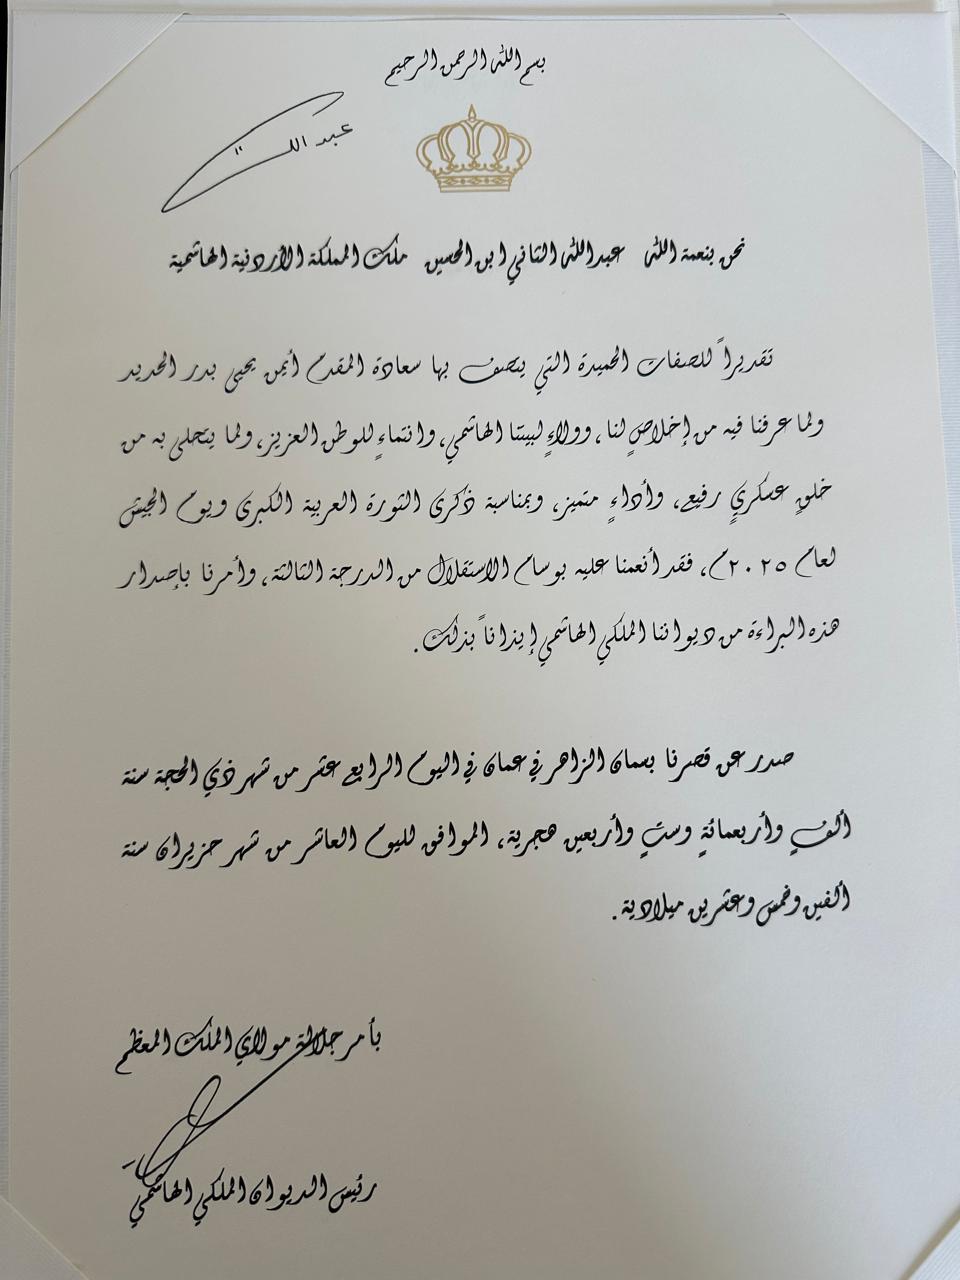 بسم الله الرحمن الرحيم
عبد الله
نحن بنعمة الله عبدالله الثاني ابن الحسين ملك المملكة الأردنية الهاشمية
تقديراً للصفات الحميدة التي يتصف بها سعادة المقدم أيمن يحيى بدر الحديد
ولما عرفنا فيه من إخلاصٍ لنا، وولاءٍ لبيتنا الهاشمي، وانتماءٍ للوطن العزيز، ولما يتحلى به من
خلقٍ عسكريٍ رفيع، وأداءٍ متميز، وبمناسبة ذكرى الثورة العربية الكبرى ويوم الجيش
لعام ٢٠٢٥م، فقد أنعمنا عليه بوسام الاستقلال من الدرجة الثالثة، وأمرنا بإصدار
هذه البراءة من ديواننا الملكي الهاشمي إيذاناً بذلك.
صدر عن قصرنا بسمان الزاهر في عمان في اليوم الرابع عشر من شهر ذي الحجة سنة
ألفٍ وأربعمائةٍ وستٍ وأربعين هجرية، الموافق لليوم العاشر من شهر حزيران سنة
ألفين وخمس وعشرين ميلادية.
بأمر جلالة مولاي الملك المعظم
رئيس الديوان الملكي الهاشمي